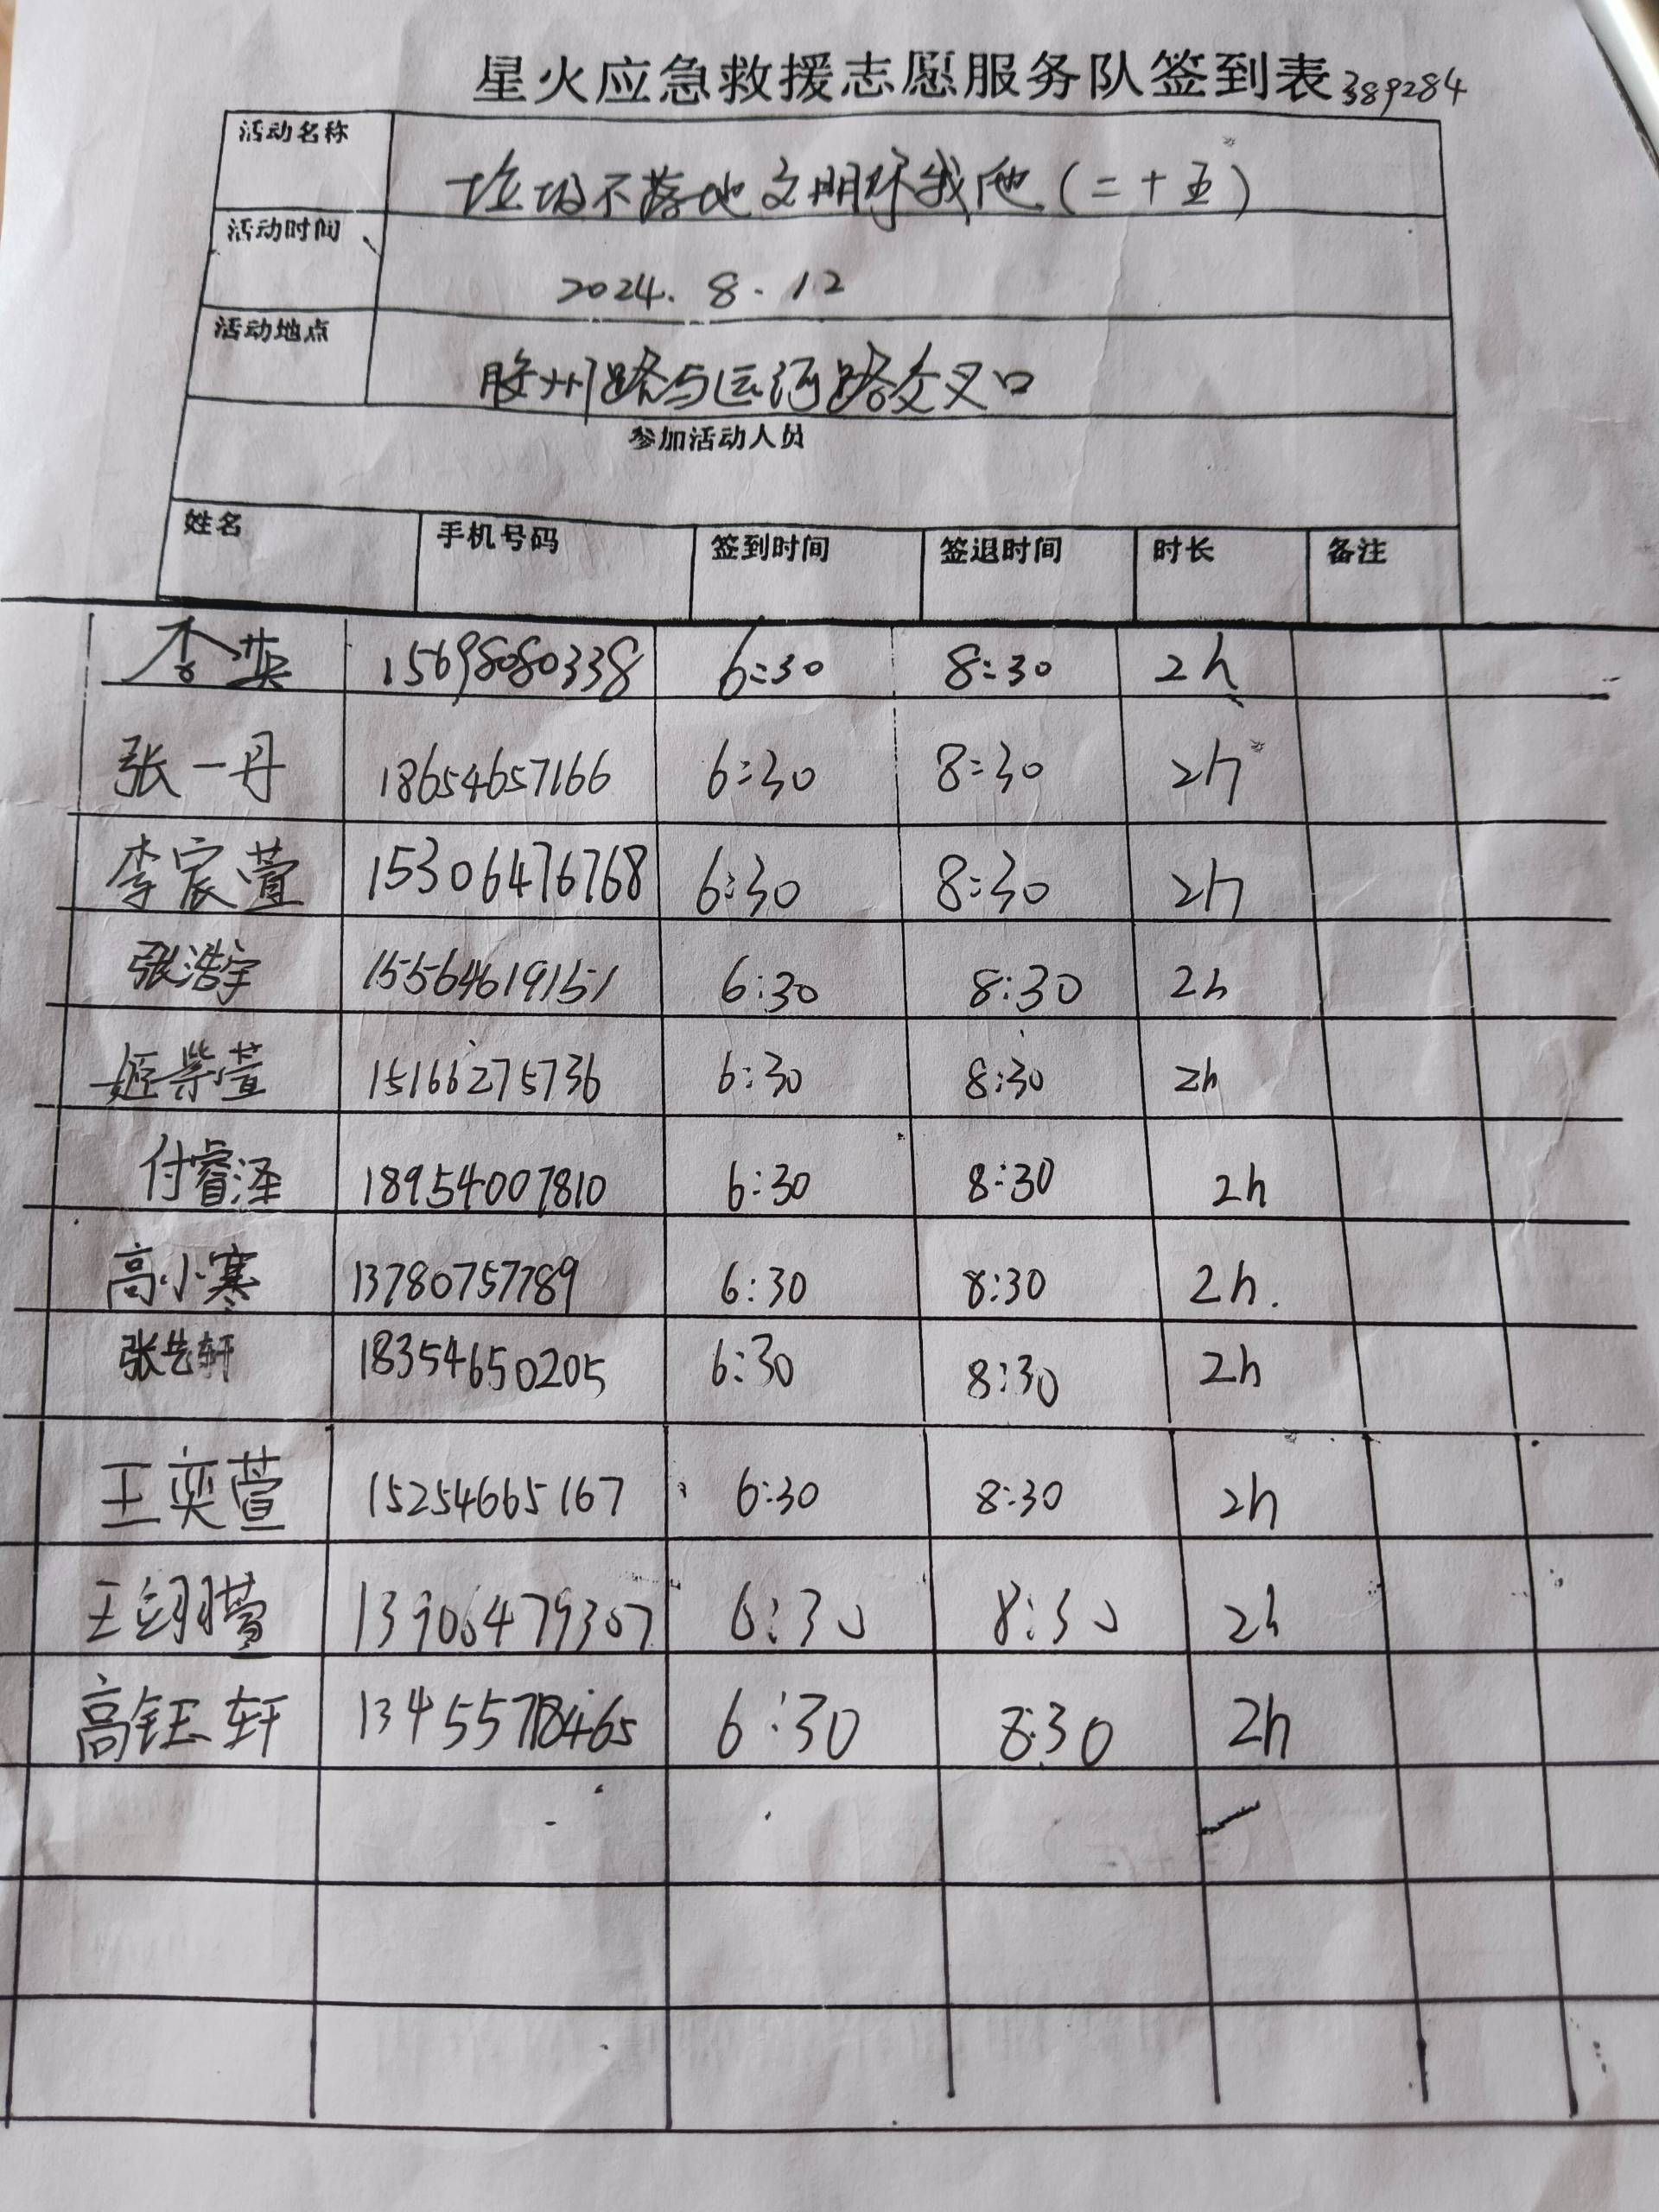 星火应急救援志愿服务队签到表389284
活动名称 垃圾不落地文明你我他(二十五)
活动时间 2024.8.12
活动地点 胶州路与运河路交叉口
参加活动人员
姓名 手机号码 签到时间 签退时间 时长 备注
李英 15698080338 6:30 8:30 2h
张一丹 18654657166 6:30 8:30 2h
李宸萱 15306476768 6:30 8:30 2h
张浩宇 15564619151 6:30 8:30 2h
姬紫萱 15166275736 6:30 8:30 2h
付睿泽 18954007810 6:30 8:30 2h
高小寒 13780757789 6:30 8:30 2h.
18354650205 6:30 8:30 2h
王奕萱 15254665167 6:30 8:30 2h
王翊萱 13906479307 6:30 8:30 2h
高钰轩 13455778465 6:30 8:30 2h